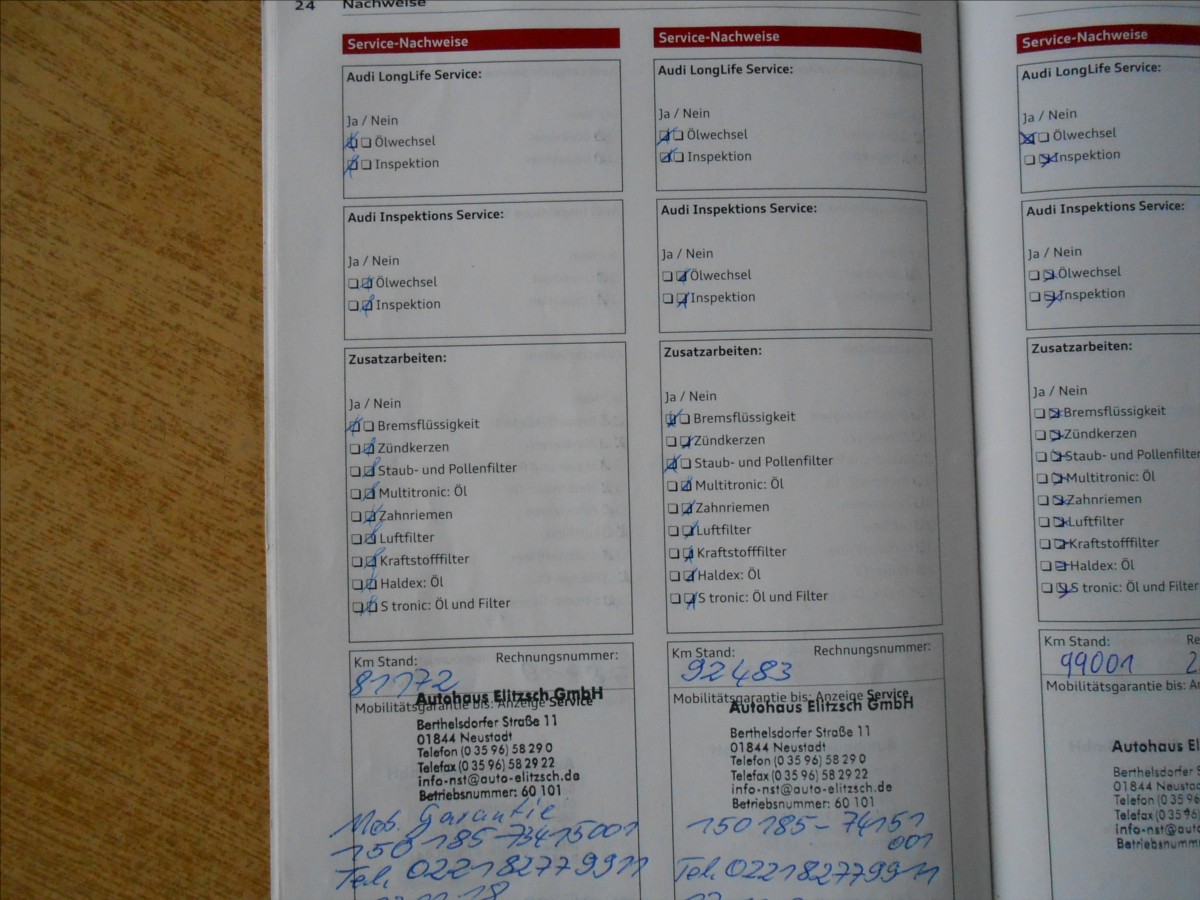 24 Nachweise
Service-Nachweise
Audi LongLife Service:
Ja / Nein
Ölwechsel
Inspektion
Audi Inspektions Service:
Ja / Nein
Ölwechsel
Inspektion
Zusatzarbeiten:
Ja / Nein
Bremsflüssigkeit
Zündkerzen
Staub- und Pollenfilter
Multitronic: Öl
Zahnriemen
Luftfilter
Kraftstofffilter
Haldex: Öl
S tronic: Öl und Filter
Km Stand: Rechnungsnummer:
81172
Mobilitätsgarantie bis: Anzeige Service
Autohaus Elitzsch GmbH
Berthelsdorfer Straße 11
01844 Neustadt
Telefon (0 35 96) 58 29 0
Telefax (0 35 96) 58 29 22
info-nst@auto-elitzsch.de
Betriebsnummer: 60 101
Mob. Garantie
150 185-73415001
Tel. 022182779911
Service-Nachweise
Audi LongLife Service:
Ja / Nein
Ölwechsel
Inspektion
Audi Inspektions Service:
Ja / Nein
Ölwechsel
Inspektion
Zusatzarbeiten:
Ja / Nein
Bremsflüssigkeit
Zündkerzen
Staub- und Pollenfilter
Multitronic: Öl
Zahnriemen
Luftfilter
Kraftstofffilter
Haldex: Öl
S tronic: Öl und Filter
Km Stand: Rechnungsnummer:
92483
Mobilitätsgarantie bis: Anzeige Service
Autohaus Elitzsch GmbH
Berthelsdorfer Straße 11
01844 Neustadt
Telefon (0 35 96) 58 29 0
Telefax (0 35 96) 58 29 22
info-nst@auto-elitzsch.de
Betriebsnummer: 60 101
150185-74151
001
Tel. 022182779911
Service-Nachweise
Audi LongLife Service:
Ja / Nein
Ölwechsel
Inspektion
Audi Inspektions Service:
Ja / Nein
Ölwechsel
Inspektion
Zusatzarbeiten:
Ja / Nein
Bremsflüssigkeit
Zündkerzen
Staub- und Pollenfilter
Multitronic: Öl
Zahnriemen
Luftfilter
Kraftstofffilter
Haldex: Öl
S tronic: Öl und Filter
Km Stand: Re
99001 2
Mobilitätsgarantie bis: A
Autohaus El
Berthelsdorfer S
01844 Neustad
Telefon (0 35 96
Telefax (0 35 96
info-nst@auto
Betriebsnumm